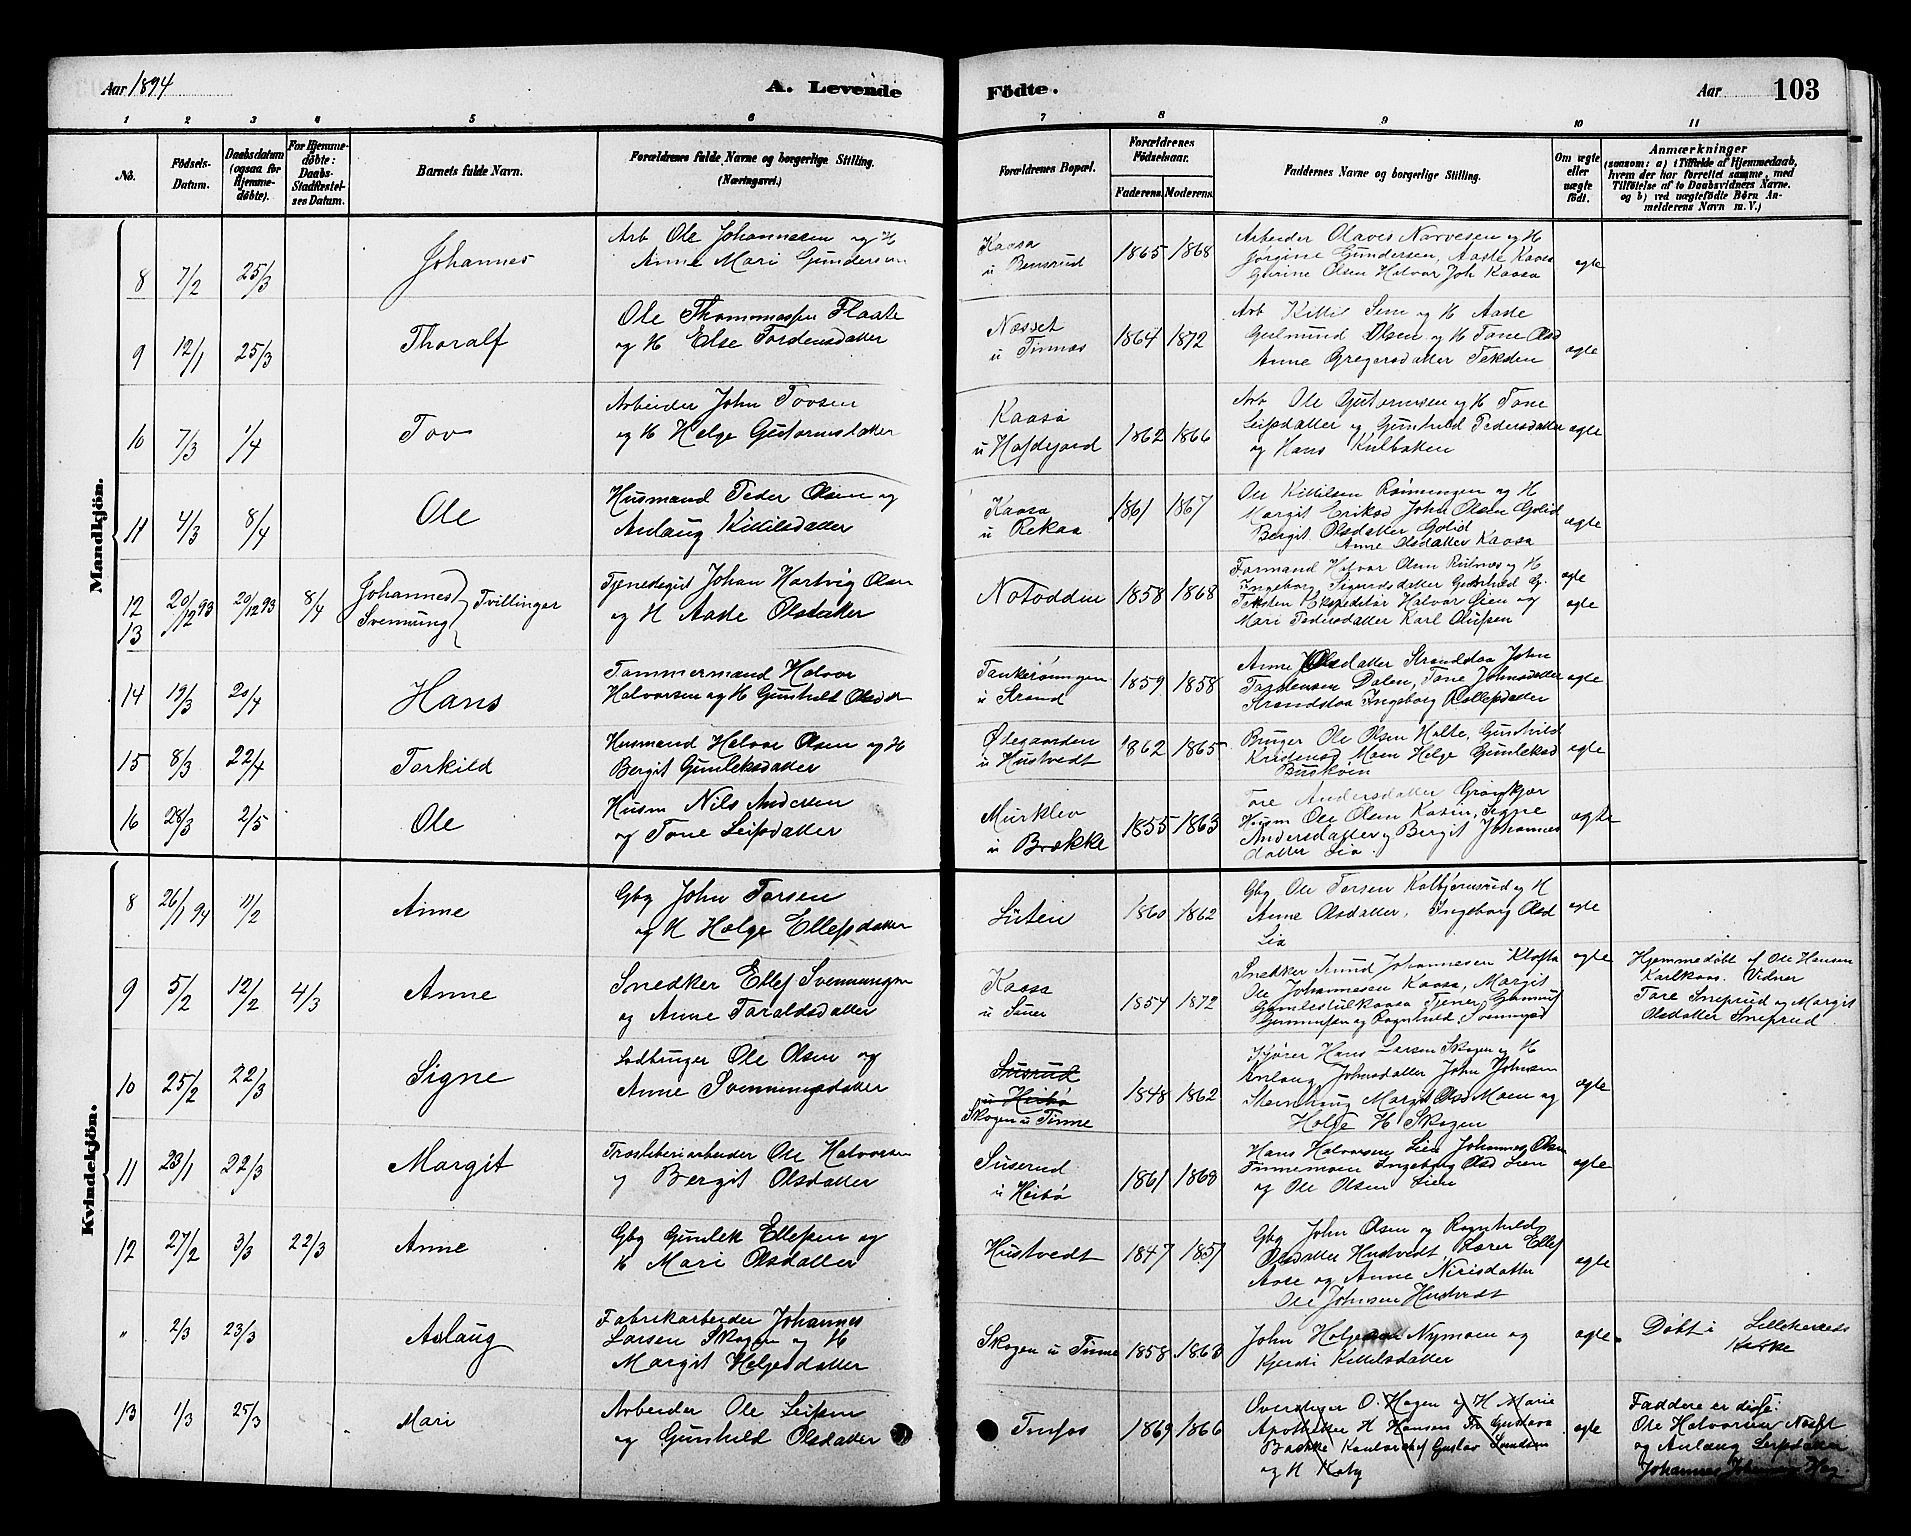 Aar 1894
A. Levende
Födte.
Aar
103
1 2 3 4 5 6 7 8 9 10 11
No.
Födsels-
Datum.
Daabsdatum
(ogsaa for
Hjemme-
døbte).
For Hjemme-
døbte:
Daabs-
Stadfæstel-
ses Datum.
Barnets fulde Navn.
Forældrenes fulde Navne og borgerlige Stilling.
(Næringsvei.)
Forældrenes Bopæl.
Forældrenes
Födselsaar.
Faderens. Moderens.
Faddernes Navne og borgerlige Stilling.
Om ægte
eller
uægte
født.
Anmærkninger
(saasom: a) i Tilfælde af Hjemmedaab,
hvem der har forrettet samme, med
Tilføielse af to Daabsvidners Navne.
og b) ved uægtefødte Børn An-
melderens Navn m. V.)
Mandkjön.
8 7/2 25/3 Johannes
Arb Ole Johannesen og H
Anne Mari Gundersen
Kaasa
u Bensrud
1865 1868
Arbeider Olaves Narvesen og H
Jorgine Gundersen, Aaste Kaasa
Gurine Olsen Halvor Joh Kaasa
ægte
9 12/1 25/3 Thoralf
Ole Thommassen Flaate
og H Else Tordensdatter
Næsset
u Tinnæs
1864 1872
Arb Kittil Sem og H Aade
Gudmund Olsen og H Tone Olsd
Anne Gregersdatter Teksten
ægte
10 7/3 1/4 Tov
Arbeider John Tovsen
og H Helge Gutormsdatter
Kaasa
u Hofdegard
1862 1866
Arb Ole Gutormsen og H Tone
Leifsdatter og Gunhild Pedersdatter
og Hans Kulbækken
ægte
11 4/3 8/4 Ole
Husmand Peder Olsen og
Anlaug Kittilsdatter
Kaasa
u Rekaa
1861 1867
Ole Kittilsen Rønningen og H
Margit Eriksd John Olsen Golid
Bergit Olsdatter Golid
Anne Olsdatter Kaasa
ægte
12 20/12 93 20/12 93 8/4 Johannes
13 Svennung Tvillinger
Tjenestegut Johan Hartvig Olsen
og H Aaste Olsdatter
Notodden
1858 1868
Formand Halvor Olsen Rutnes og H
Ingeborg Sigurdsdatter Gunhild G.
Teksten Ekspeditør Halvor Øien og
Mari Pedersdatter Karl Olufsen
ægte
ægte
14 19/3 20/4 Hans
Tømmermand Halvor
Halvorsen og H Gunhild Olsdatter
Tankerønningen
u Strand
1859 1858
Anne Olsdatter Strandstoa John
Tordensen Dalen, Tone Johnsdatter
Strandstoa Ingeborg Rollefsdatter
ægte
15 8/3 22/4 Torkild
Husmand Halvor Olsen og H
Bergit Gunleksdatter
Ødegaarden
u Hustvedt
1862 1865
Bruger Ole Olsen Holte, Gunhild
Kristensd Moen Helge Gunleksd
Buskoen
ægte
16 28/3 2/5 Ole
Husm Nils Andersen
og Tone Leifsdatter
Murklev
u Brække
1855 1863
Tore Andersdatter Grønkjær
Husm Ole Olsen Kasin, Signe
Andersdatter og Bergit Johannes
datter Lia.
ægte
Kvindekjön.
8 26/1 94 11/2 Anne
Gbg John Torsen
og H Helge Ellefsdatter
Listen
1860 1862
Gbg Ole Torsen Kolbjørnsrud og H
Anne Olsdatter, Ingeborg Olsd
Lia
ægte
9 5/2 12/2 4/3 Anne
Snedker Ellef Svennungsen
og Anne Taraldsdatter
Kaasa
u Tuer
1854 1872
Snedker Amund Johannesen Klofta
Ole Johannesen Kaasa, Margit
Gamlestulkaasa Tjener Gunnuf
Gunnufsen og Ragnhild Svennugsd
ægte
Hjemmedøbt af Ole Hansen
Karlkaas. Vidner
Tore Sneprud og Margit
Olsdatter Sneprud.
10 25/2 22/3 Signe
Ladbruger Ole Olsen og
Anne Svennungsdatter
Susrud
u Heibø
Skogen u Tinne
1848 1862
Kjører Hans Larsen Skogen og H
Anlaug Johnsdatter John Johnsen
Stenhaug Margit Olsd Moen og
Holge H Skogen
ægte
11 23/1 22/3 Margit
Træsliberiarbeider Ole Halvorsen
og Bergit Olsdatter
Suserud
u Heibø
1861 1863
Hans Halvorsen Lien Johannes Olsen
Tinnemoen Ingeborg Olsd Lien
og Ole Olsen Lien
ægte
12 27/2 3/3 22/3 Anne
Gbg Gunlek Ellefsen og
H Mari Olsdatter
Hustvedt
1847 1857
Gbg John Olsen og Ragnhild
Olsdatter Hustvedt, Lærer Ellef
Aase og Anne Nirisdatter
Ole Johnsen Hustvedt
ægte
" 2/3 23/3 Aslaug
Fabrikarbeider Johannes
Larsen Skogen og H
Margit Helgesdatter
Skogen u Tinne
1858 1863
John Holgesen Nymoen og
Kjersti Kittilsdatter
ægte
Døbt i Lilleherreds
Kirke
13 1/3 25/3 Mari
Arbeider Ole Leifsen
og Gunhild Olsdatter
Tinfos
1869 1866
Overstiger O. Hagen og H Marie
Apotheker H Hansen Fr Gustava
Bakke Kontorchef Gustav Knudsen
og H Kaby
ægte
Faddere er disse:
Ole Halvorsen Næset
og Anlaug Leifsdatter
Johannes